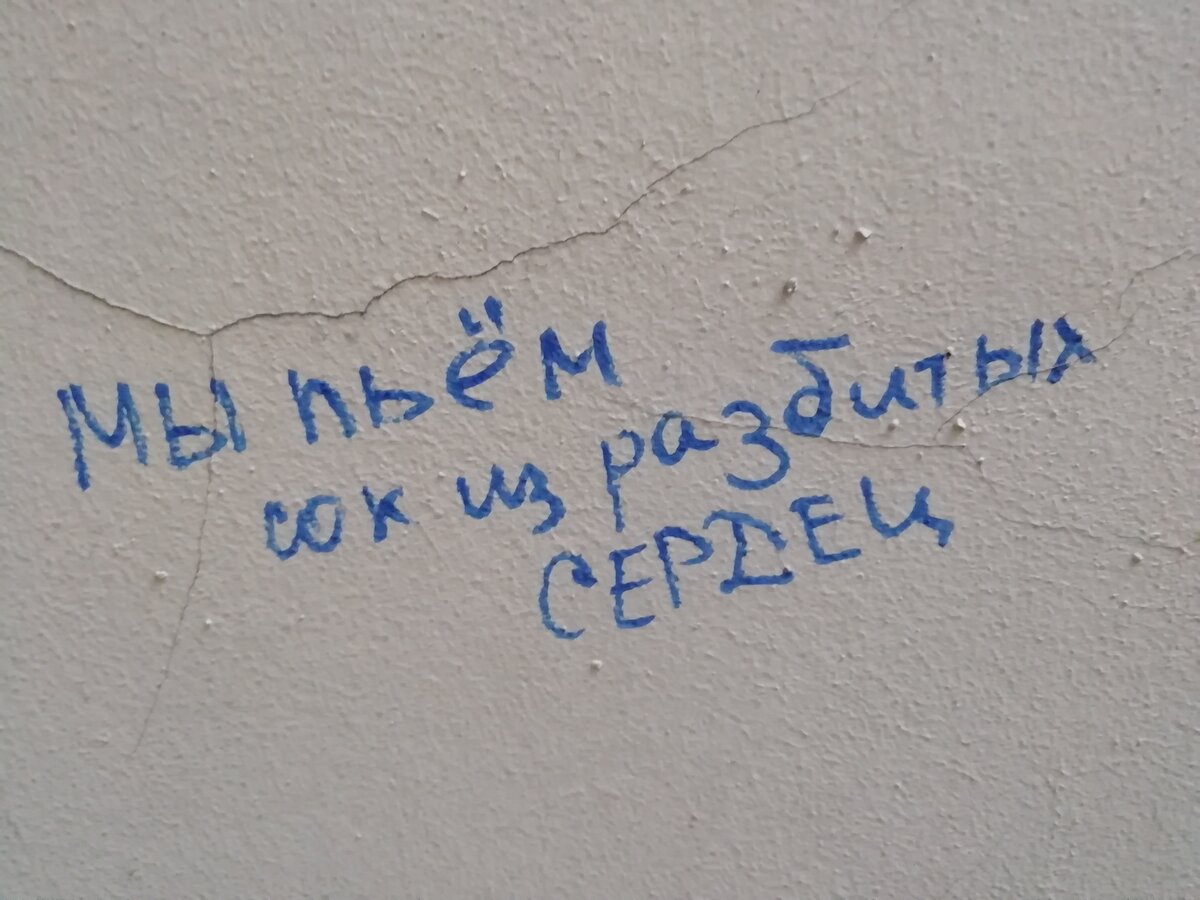 Мы пьём
сок из разбитых
СЕРДЕЦ